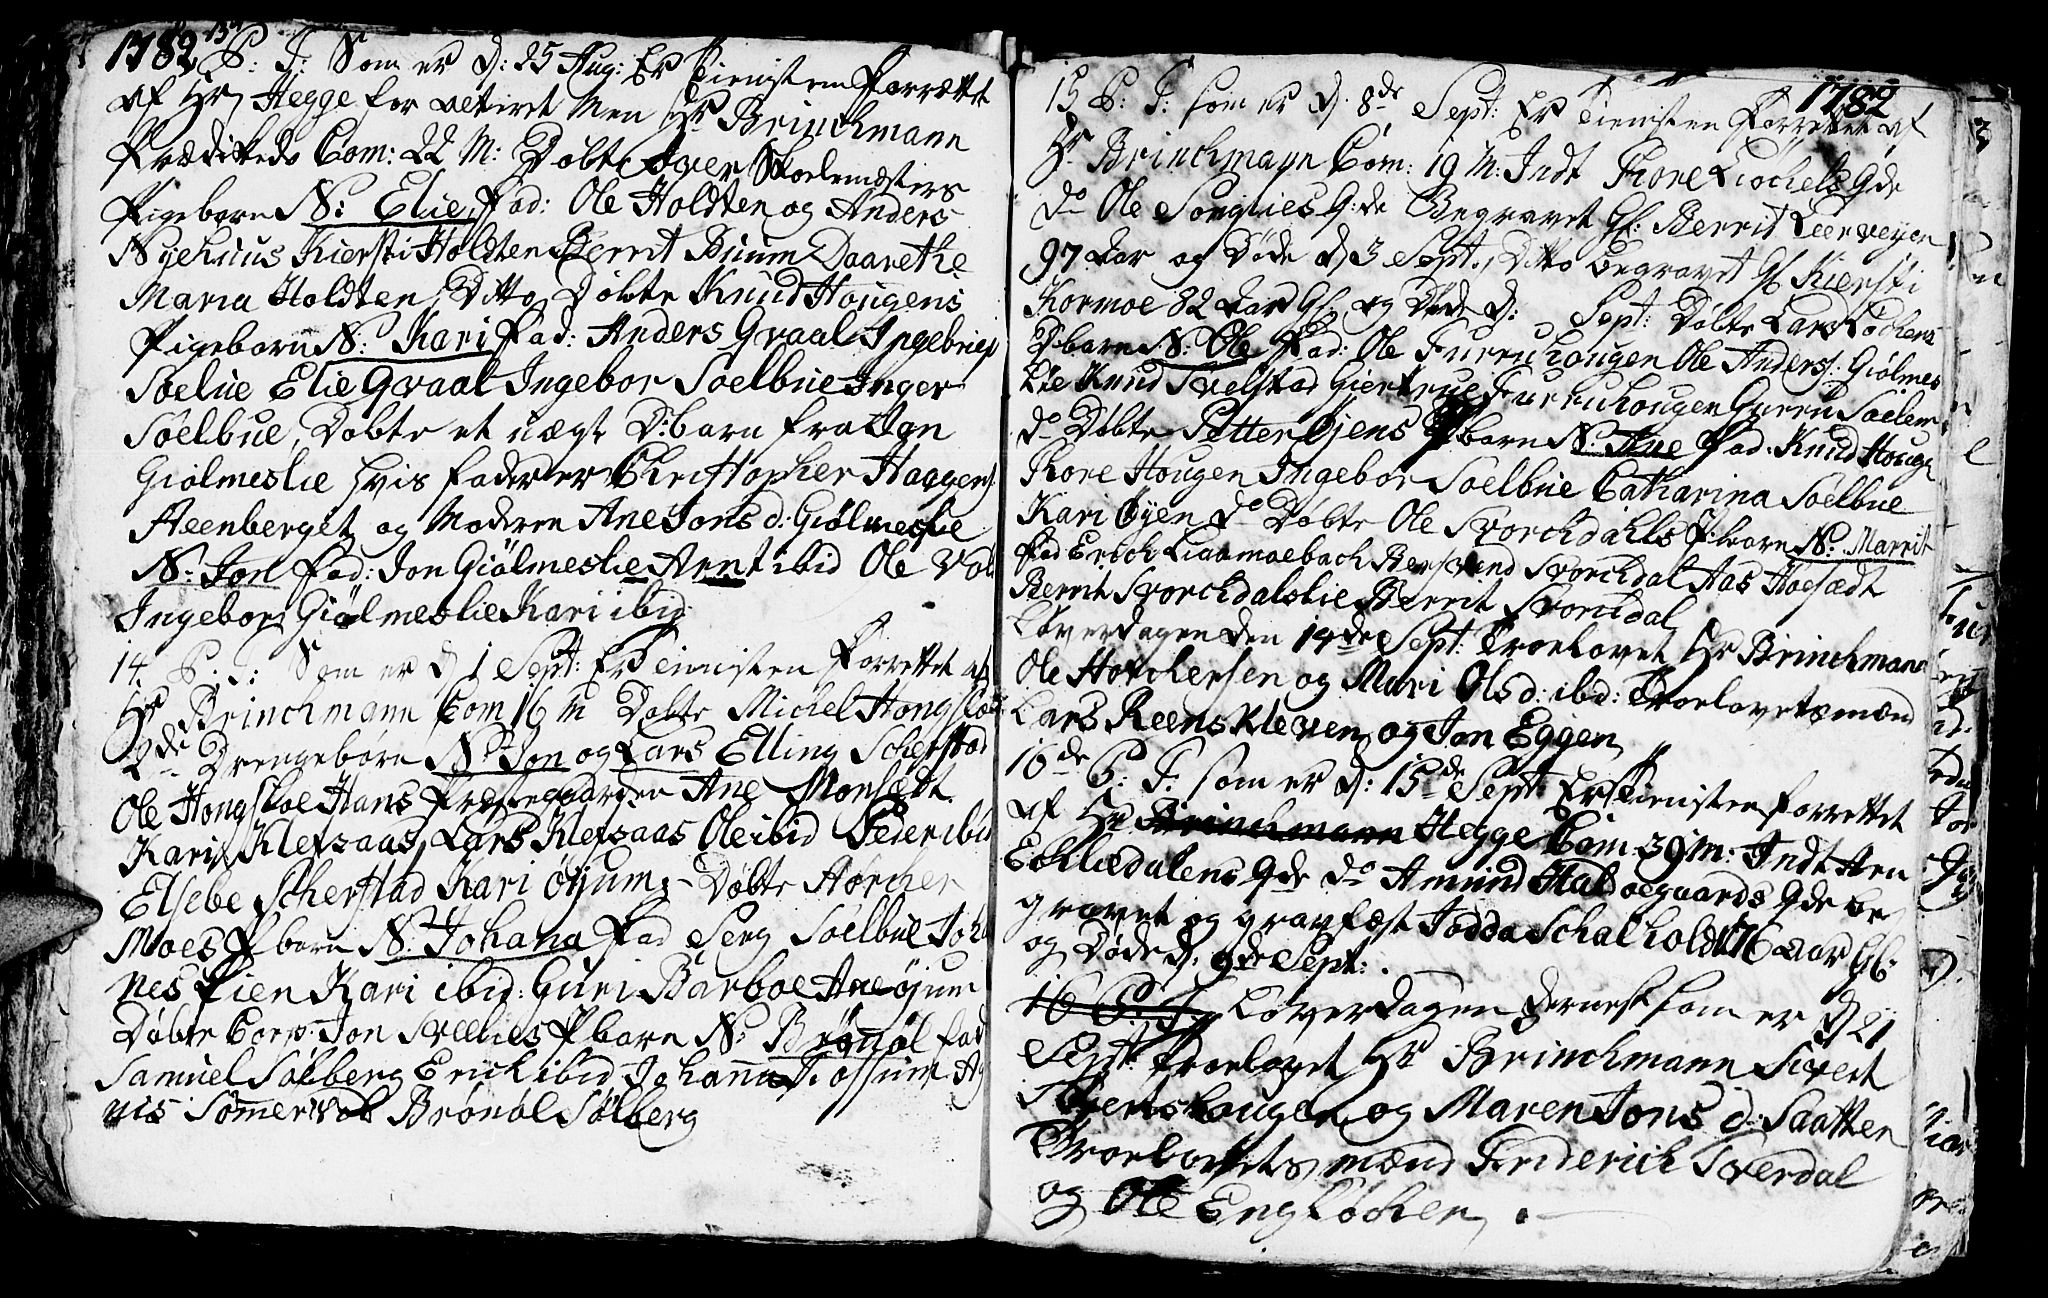 1782 13 P: T: Som er d: 25 Aug: Er Tienisten Forrættet
af Hr Hegge for alteret Men Hr Brinchmann
Prædikede Com: 22 M: Døbte Iver Skolemæsters
Pigebarn N: Elie Fad: Ole Holdten og Anders
Nyehuus Kiersti Holdten Berrit Biuum Daarethe
Maria Holdten, Ditto Døbte Knud Hougens
Pigebarn N: Kari Fad: Anders Graal Ingebrigt
Soelue Elie Graal Ingebor Soelbue Inger
Soelbue, Døbte et uægte D:barn fra Jon
Giølmeslie hvis fader er Christopher Haagens:
Heenberget og Moderen Ane Jons d: Giølmeslie
N: Jon Fad: Jon Giølmeslie Arnt ibid Ole Vol
Ingebor Giølmeslie Kari ibid:
14 P: T: Som er d 1 Sept: Er Tienisten Forrettet af
Hr Brinchmann Com 16 M Døbte Michel Hongsloe
2de Drengebørn N: Jon og Lars Elling Scherstad
Ole Hongsloe Hans Prestegaarden Ane Monsædt
Kari Klefsaas, Lars Klefsaas Ole ibid Peder ibid
Elsebe Scherstad Kari Øyum, Døbte Horcher
Moes P barn N: Johana Fad Serg Soelbue Joha
nes Eien Kari ibid: Guri Barboe Ane Øjum
Døbte Corp: Jon Svelies P barn N: Brønøl fad
Samuel Solberg Erich ibid Johanna Fossum Ag
nis Sommervol Brønøl Sølberg
1782
15 P: T: som er d. 8de Sept: Er Tienisten Forrettet af
Hr Brinchmann Com: 19 M: Indt Tore Løchels Qde
do Ole Songlies Q:de Begravet Gl: Berrit Leerveyen
97 Aar og Døde d 3 Sept:, Ditto begravet Gl Kiersti
Kormoe 82 Aar Gl: og Døde d: Sept: Døbte Lars Løchens
D:barn N: Ole Fad: Ole Furruhougen Ole Anders: Giølmes
lie Knud Svelstad Giertrue Furruhougen Gurru Soelem
do Døbte Petter Øjens P barn N: Ane Fad: Knud Houge
Tore Hougen Ingebor Soelbue Catharina Soelbue
Kari Øyen do Døbte Ole Svorchdahls P:barn N: Marrit
Fad Erich Liaamoebach Bersvend Svorchdal Aas Hoesædt
Berrit Svorchdalslie Berrit Svorchdal
Løverdagen den 14de Sept: Troelovet Hr Brinchmann
Ole Horchersen og Mari Ols d: ibid: Troelovetsmænd
Lars Reenskleven og Jon Eggen
16de P: T: som er d: 15de Sept: Er Tienisten forrettet
af Hr Brinchmann Hegge Com 39 M: Indt Hen
Echliedalens Qde do Amund Haldoegaards Qde be
gravet og gravfæst Jodda Schalholdt 76 Aar Gl:
og Døde d: 9de Sept:
16 P: T: Løverdagen dernest som er d 21
Sept: troelovet Hr Brinchmann Sivert
hougen og Maren Jons d: Saatten
Troelovets mænd Friderich Sverdal
og Ole Eng Løchen